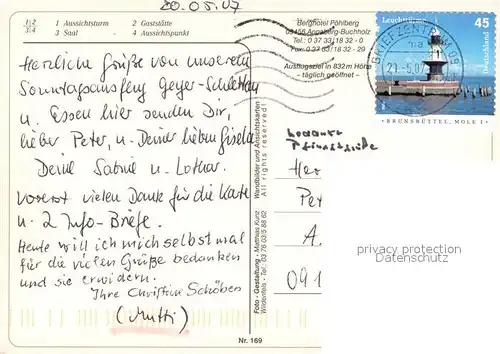 20.05.07
1|2 1 Aussichtsturm 2 Gaststätte
3|4 3 Saal 4 Aussichtspunkt
Herzliche Grüße von unserem
Sonntagsausflug Geyer-Schlettau
u. Essen hier senden Dir,
lieber Peter, u. Deiner lieben Gisela
Deine Sabine u. Lothar.
Vorerst vielen Dank für die Karte
u. 2 Info-Briefe.
Heute will ich mich selbst mal
für die vielen Grüße bedanken
und sie erwidern.
Ihre Christine Schöben
(Mutti)
Berghotel Pöhlberg
09456 Annaberg-Buchholz
Tel.: 0 37 33/18 32 0
Fax 0 37 33/18 32 - 29
Ausflugsziel in 832 m Höhe
- täglich geöffnet -
Wandbilder und Ansichtskarten
All rights reserved
Foto - Gestaltung - Matthias Kunz
Wildenfels - Tel.: 03 76 03/5 88 62
Nr. 169
Leuchttürme
45
Deutschland
BRUNSBÜTTEL, MOLE 1
BRIEFZENTRUM 09
21.-5.07
Her
Pet
A.
091
privacy protection
Datenschutz